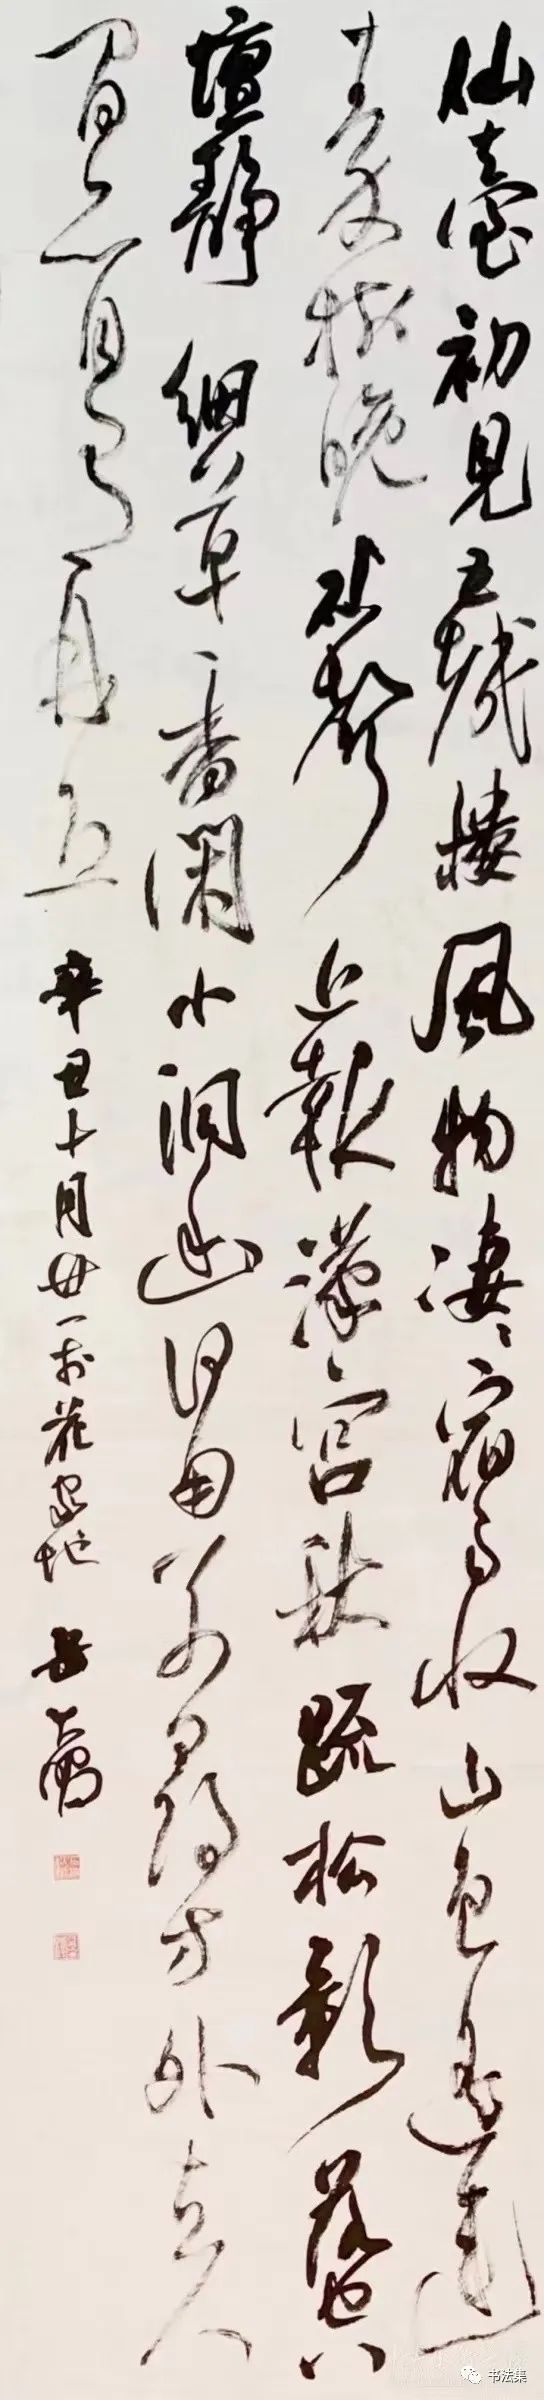 仙臺初見五城樓風物凄凄宿雨收山色遥連
秦樹晚砧聲近報漢宫秋疏松影落空
壇靜細草香閑小洞幽何用别尋方外去人
間亦自有丹丘 辛丑十月廿一於花家地
书法集